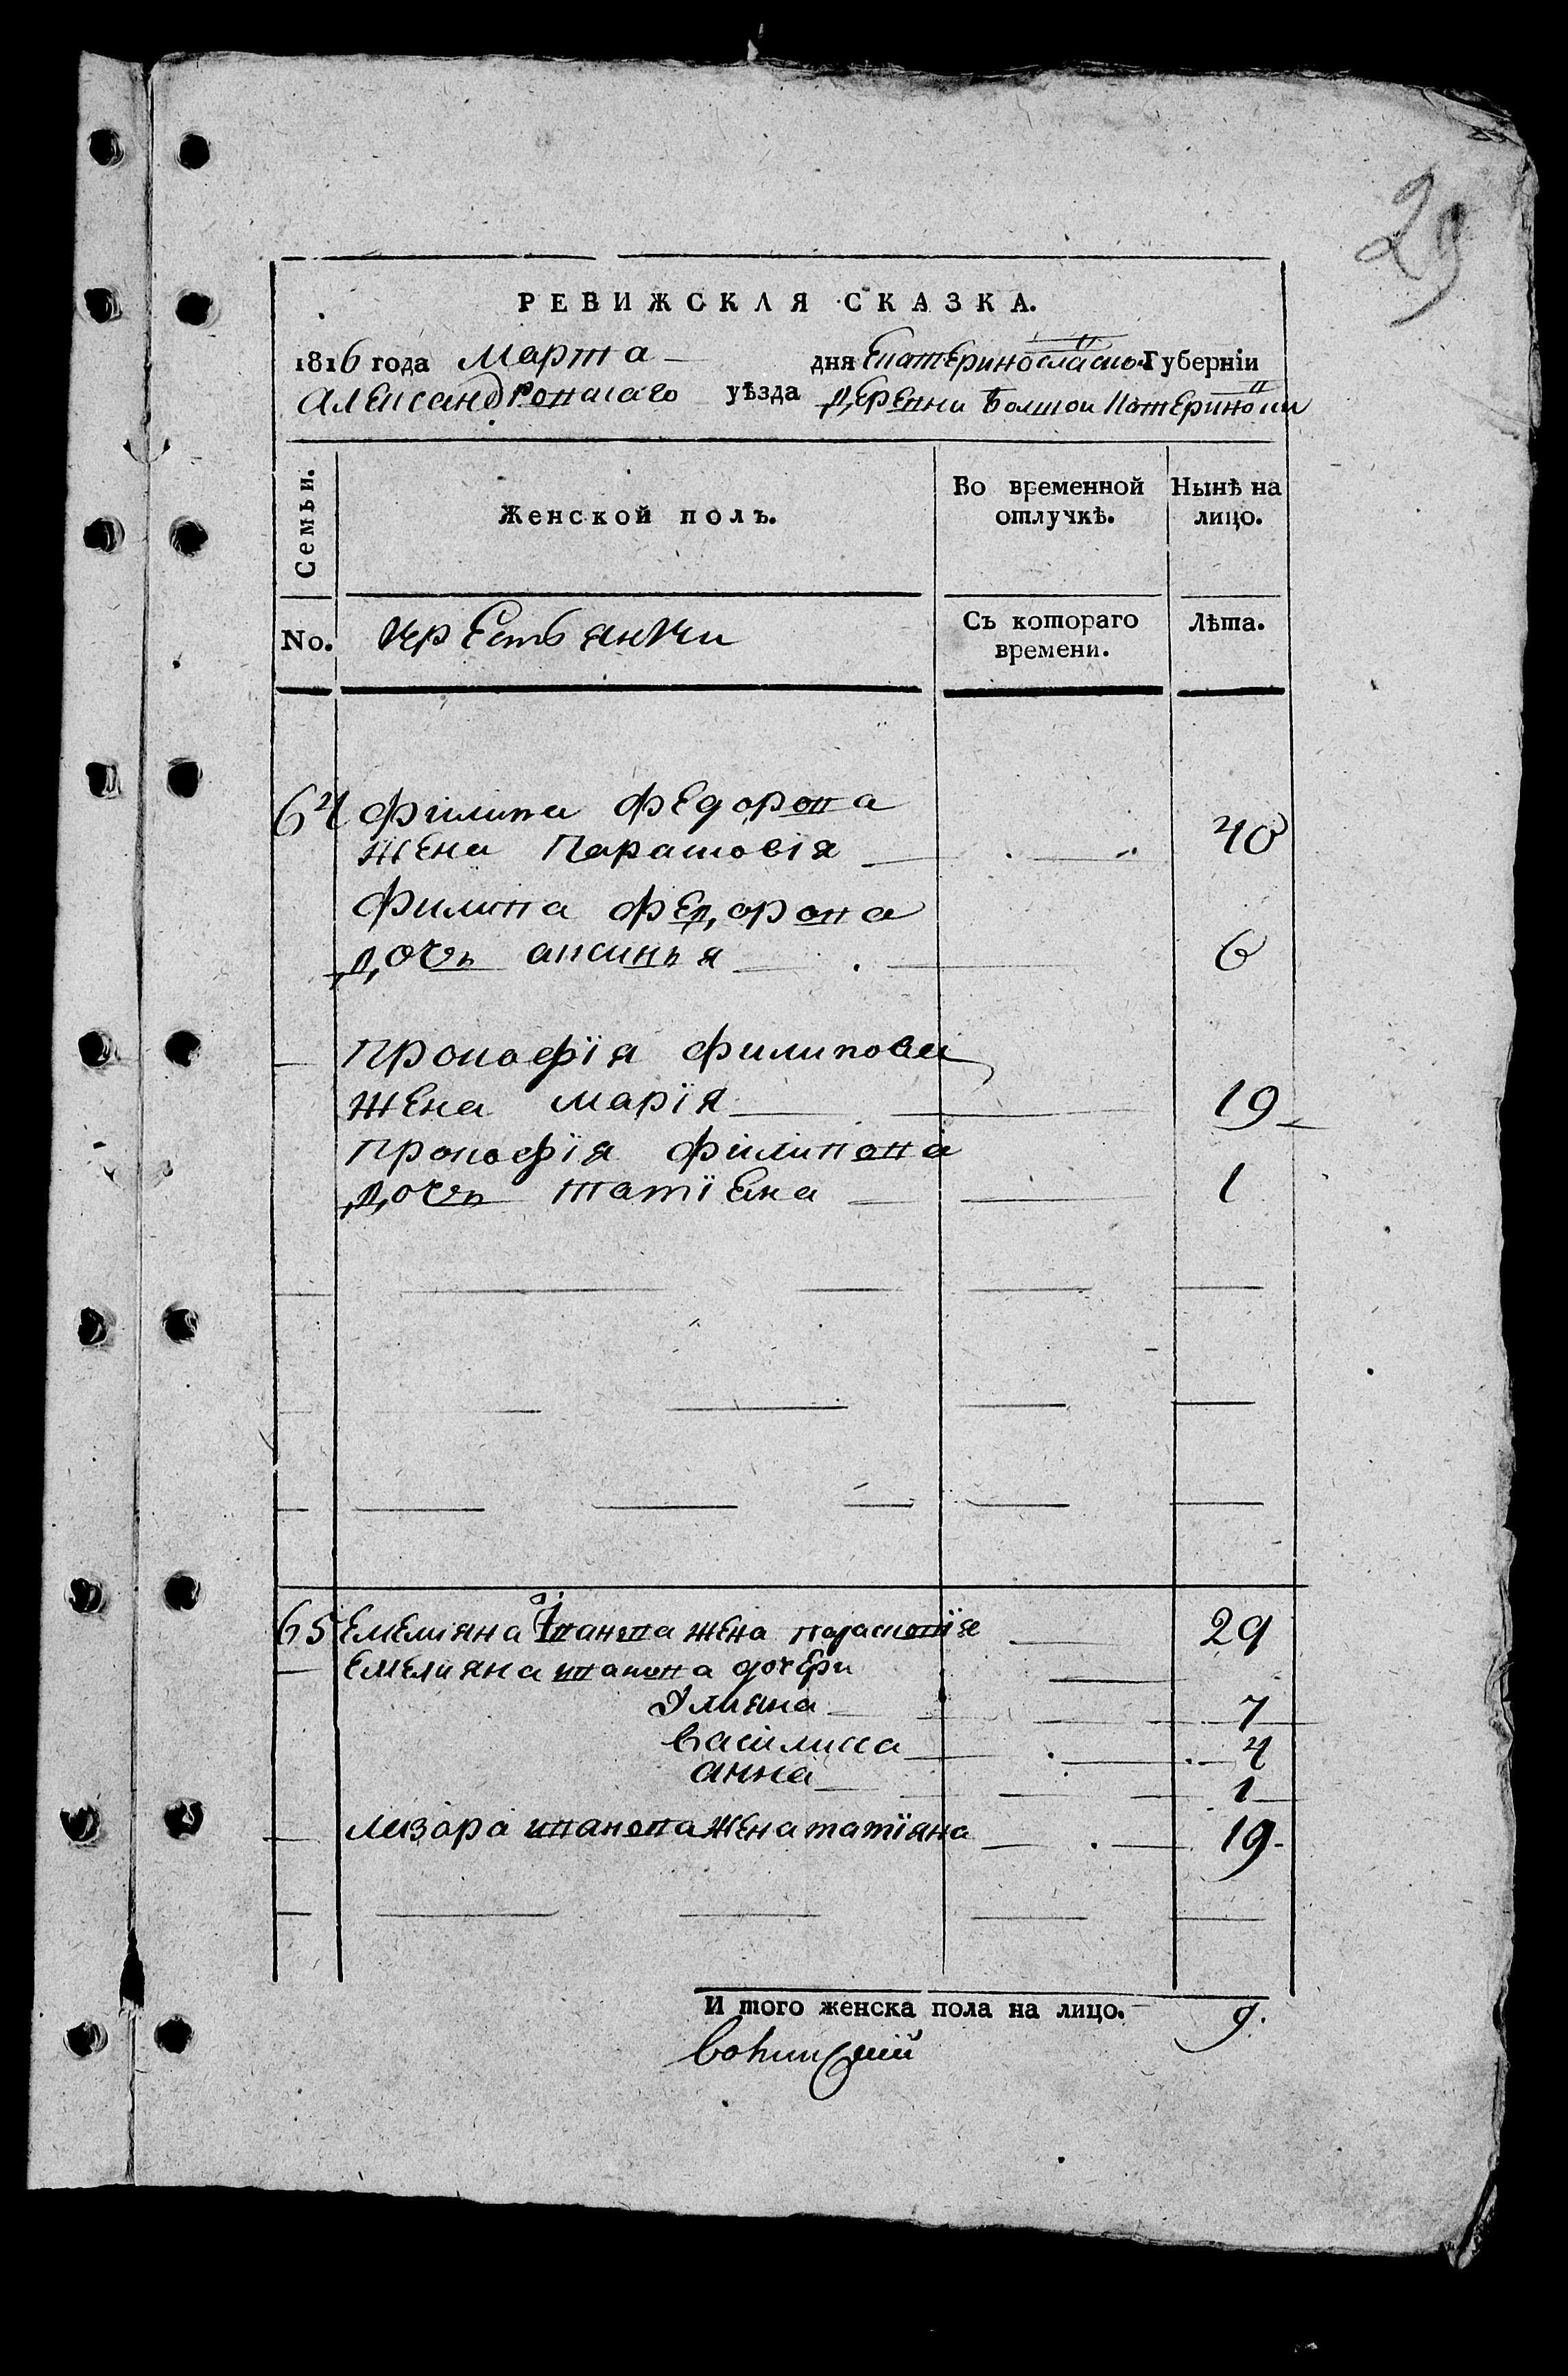 29
РЕВИЖСКАЯ СКАЗКА.
1816 года Марта дня Екатериносласкои Губерніи
Александровскаго уѣзда деревни Болшои Катериновки
Семьи. Женской полъ. Во временной отлучкѣ. Нынѣ на лицо.
No. крестьянки Съ котораго времени. Лѣта.
64 Филипа Федорова
жена Парасковія 40
Филипа Федорова
дочь аксинья 6
Прокофїя филипова
жена марїя 19
Прокофїя филипова
дочь татїена 1
65 Емелияна Иванова жена парасковїя 29
Емелияна иванова дочери
Улияна 7
Василиса 4
анна 1
Лазара иванова жена татїяна 19
И того женска пола на лицо. 9.